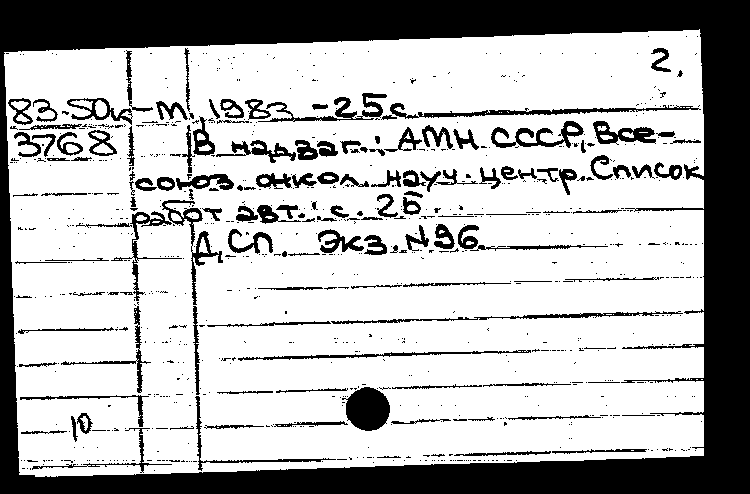 2.
83-50к - М., 1983 - 25 с.
3768 В надзаг.: АМН СССР, Все-
союз. онкол. науч. центр. Список
работ авт.: с. 25.
Д.СП. Экз. N 96.
10